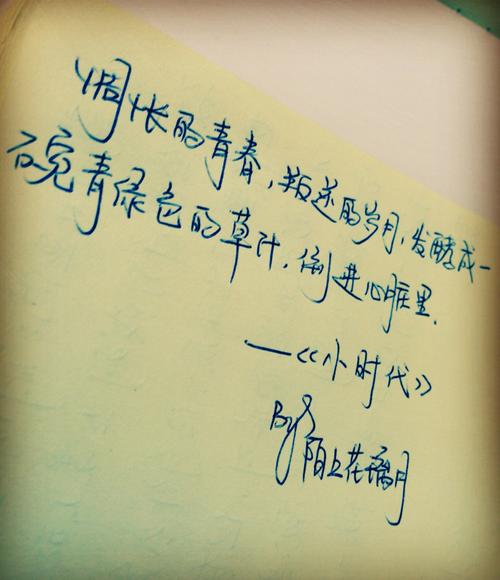 惆怅的青春,叛逆的岁月,发酵成一
碗青绿色的草汁,倒进心脏里.
—《小时代》
By 陌上花璃月